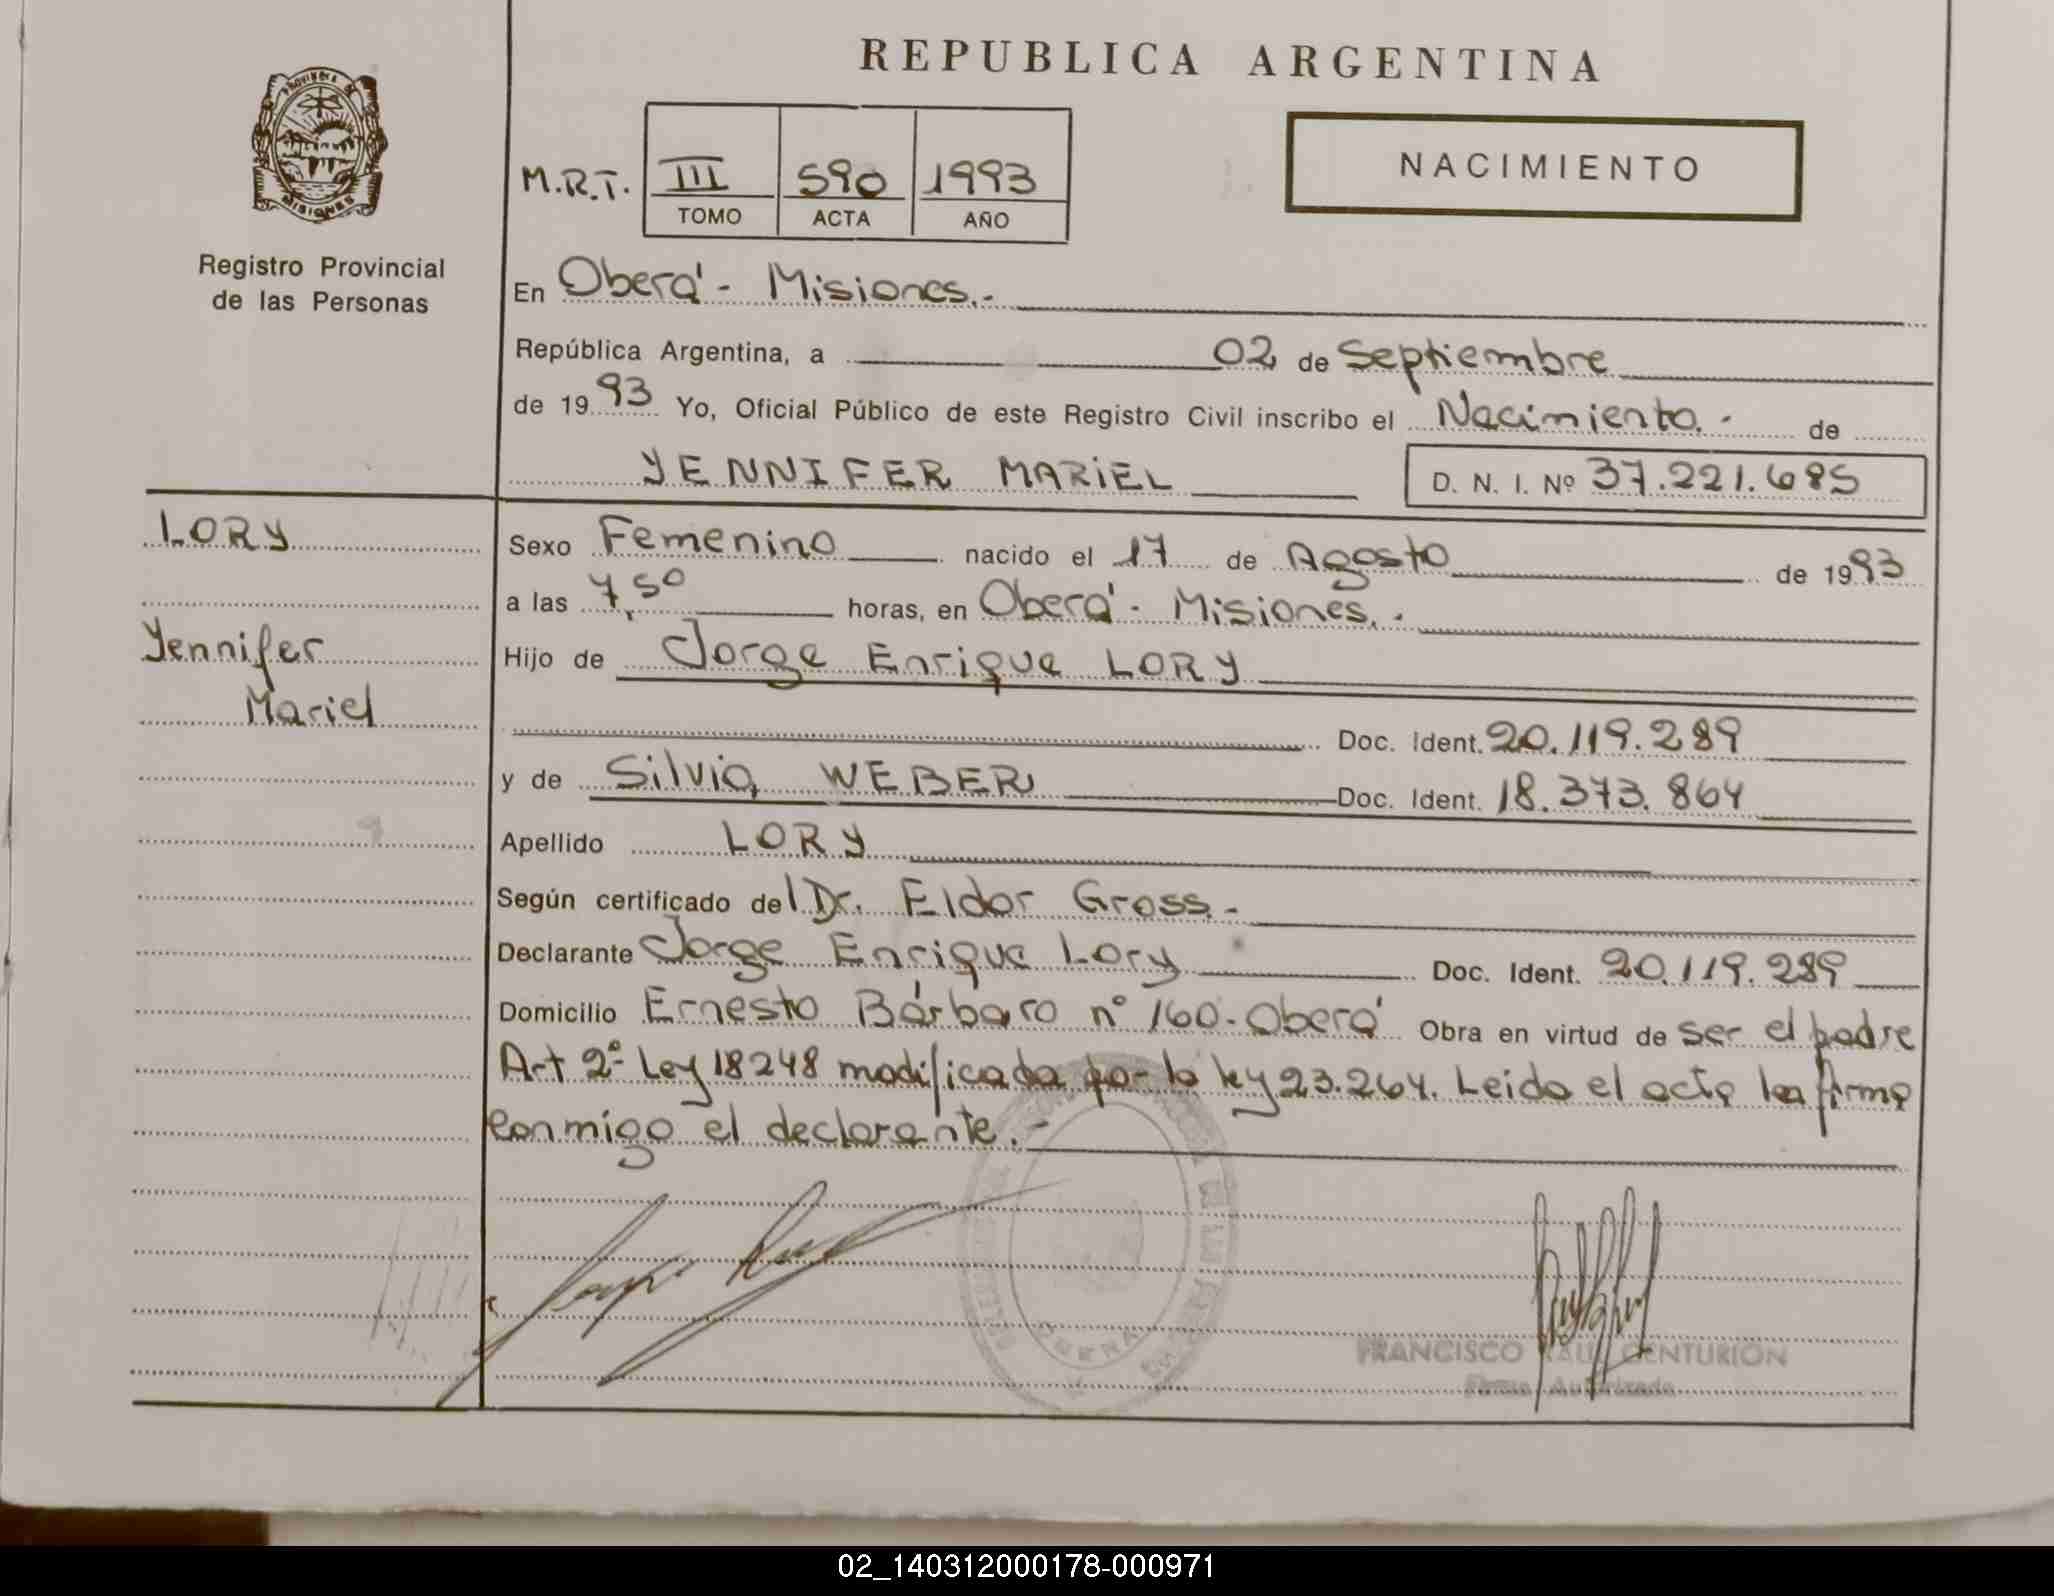 REPUBLICA ARGENTINA
PROVINCIA DE MISIONES
NACIMIENTO
M.R.T. III 590 1993
TOMO ACTA AÑO
Registro Provincial
de las Personas
En Oberá - Misiones.-
República Argentina, a 02 de Septiembre
de 1993 Yo, Oficial Público de este Registro Civil inscribo el Nacimiento.- de
YENNIFER MARIEL D. N. I. Nº 37.221.685
LORY
Yennifer
Mariel
Sexo Femenino nacido el 17 de Agosto de 1993
a las 7,50 horas, en Oberá - Misiones.-
Hijo de Jorge Enrique LORY
Doc. Ident. 20.119.289
y de Silvia WEBER Doc. Ident. 18.373.864
Apellido LORY
Según certificado del Dr. Eldor Gross.-
Declarante Jorge Enrique Lory Doc. Ident. 20.119.289
Domicilio Ernesto Bárbaro nº 160-Oberá Obra en virtud de ser el padre
Art 2º Ley 18248 modificada por la ley 23.264. Leida el acta la firma
conmigo el declarante.-
OBERA
FRANCISCO RAUL CENTURION
Firma Autorizada
02_140312000178-000971